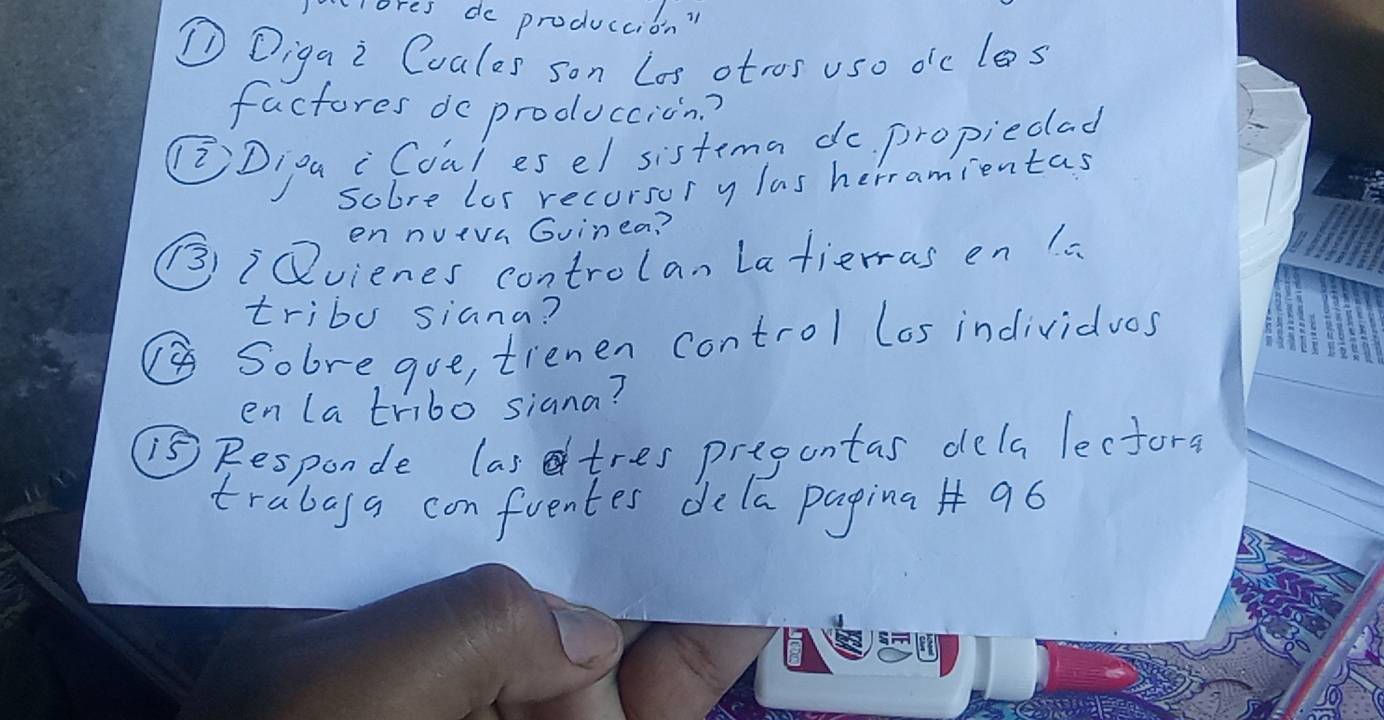 factores de producción"
11 Diga ¿ Cuales son Los otros uso de los
factores de producción?
12 Diga ¿ Cuál es el sistema de propiedad
sobre los recursos y las herramientas
en nueva Guinea?
13 ¿Quienes controlan La tierras en la
tribu siana?
14 Sobre que, tienen control Los individuos
en la tribo siana?
15 Responde las tres preguntas de la lectora
trabaja con fuentes de la pagina # 96